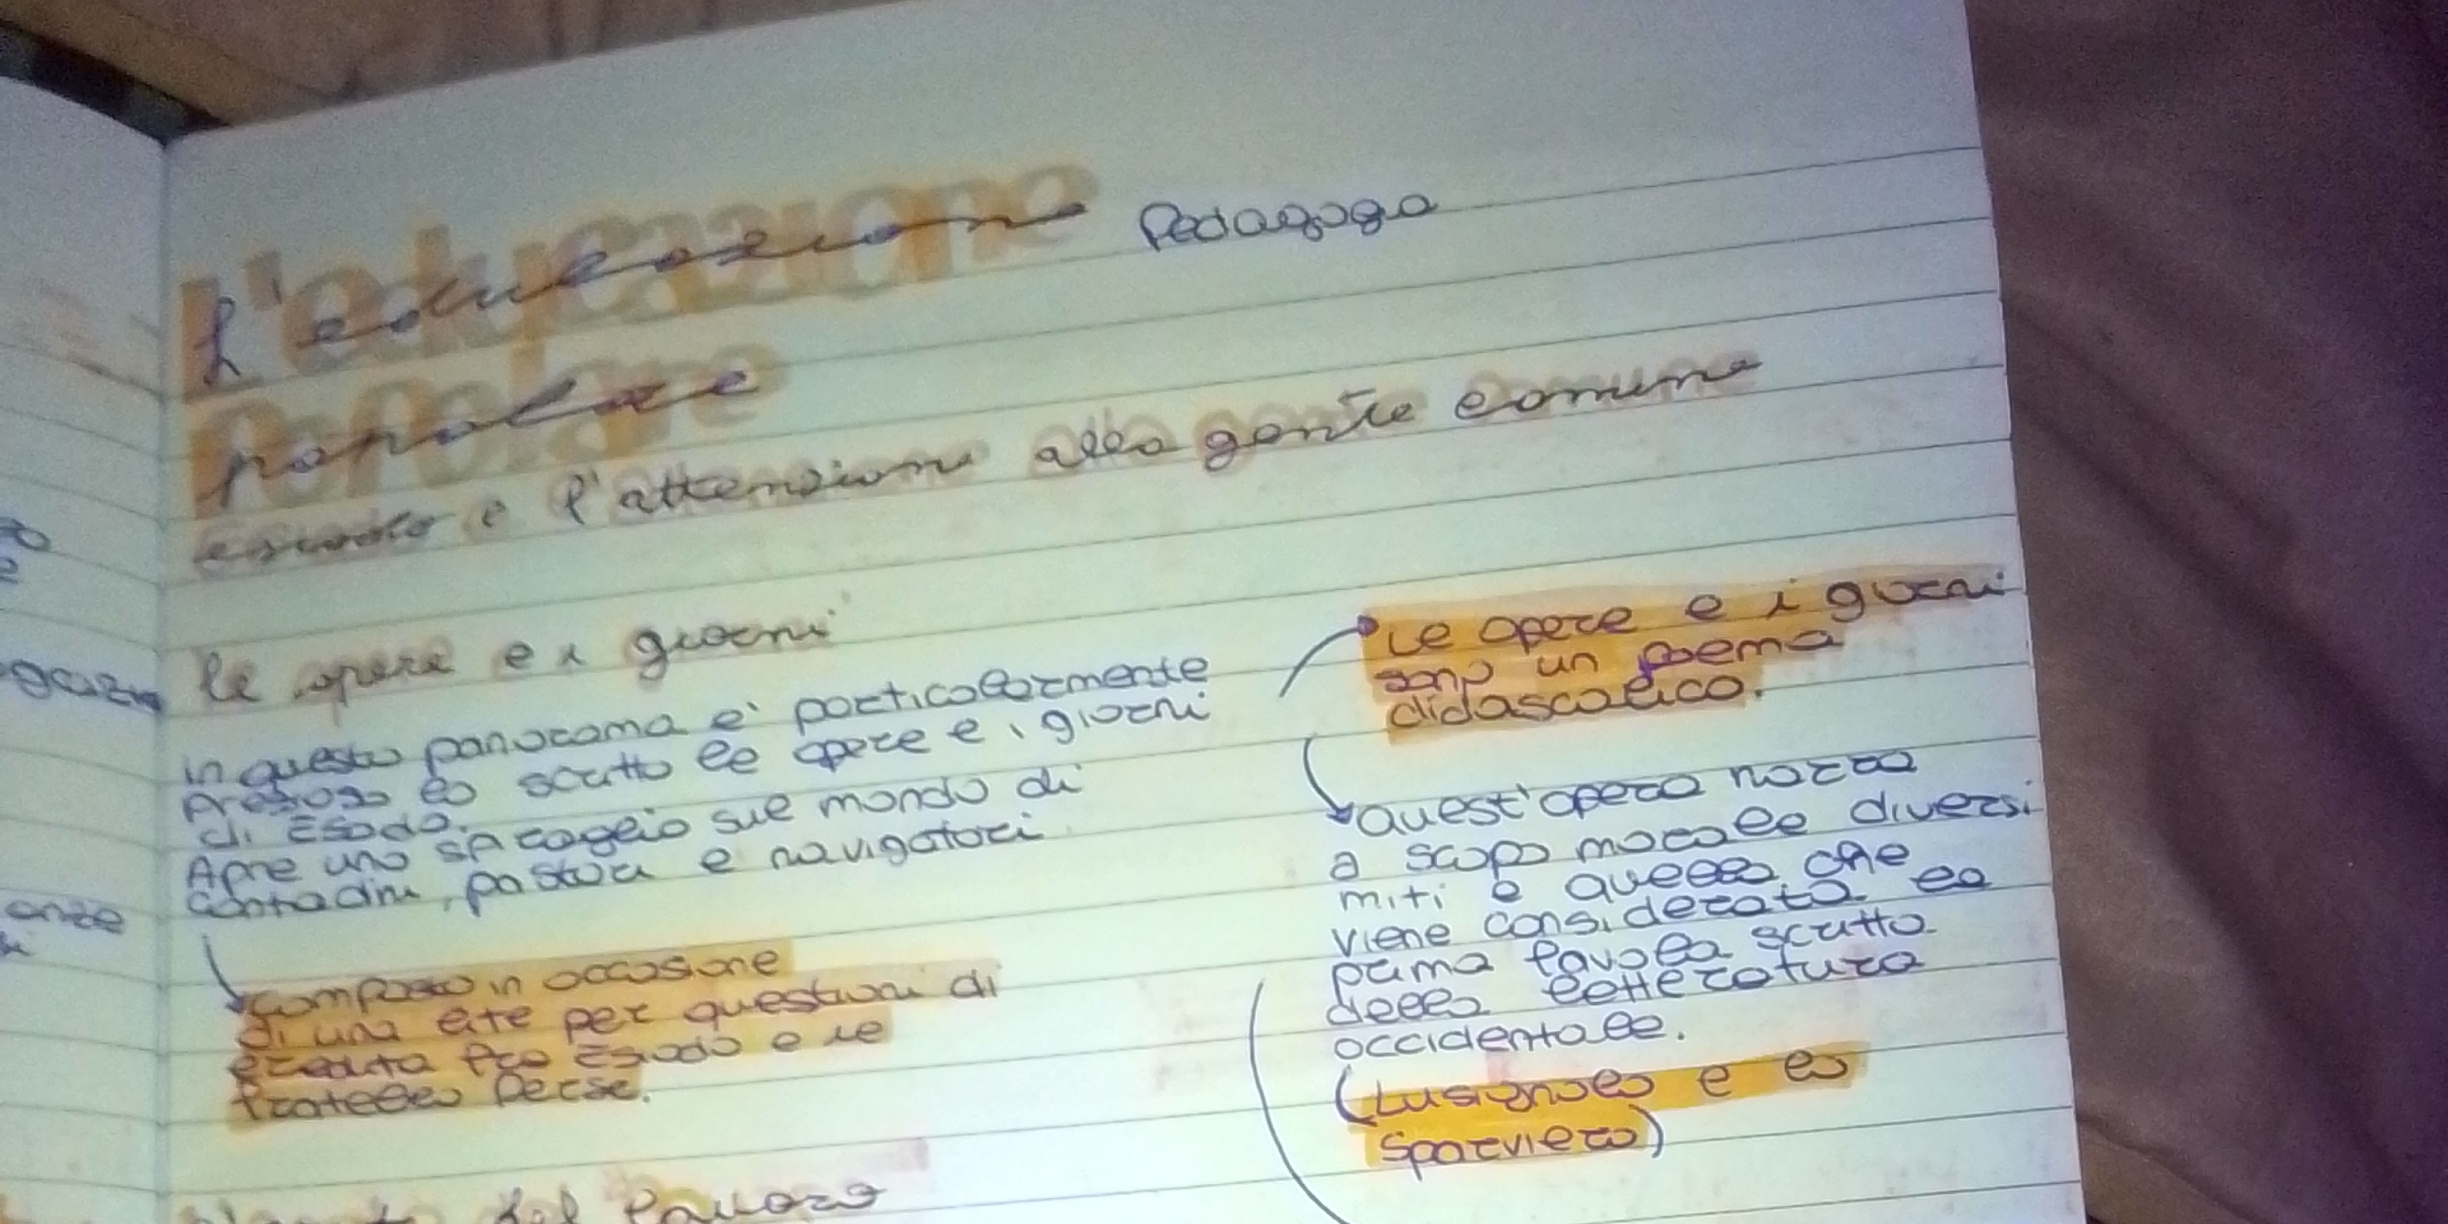 L'educazione Pedagogia
popolare
esiodo e l'attenzione alla gente comune
le opere e i giorni
in questo panorama e' particolarmente
prezioso lo scritto le opere e i giorni
di Esiodo.
Apre uno spiraglio sul mondo di
contadini, pastori e navigatori
composto in occasione
di una lite per questioni di
eredita fra Esiodo e il
fratello Perse.
del lavoro
Le opere e i giorni
sono un poema
didascalico.
Quest'opera narra
a scopo morale diversi
miti e quella che
viene considerata la
prima favola scritta
della letteratura
occidentale.
(L'usignolo e lo
sparviero)